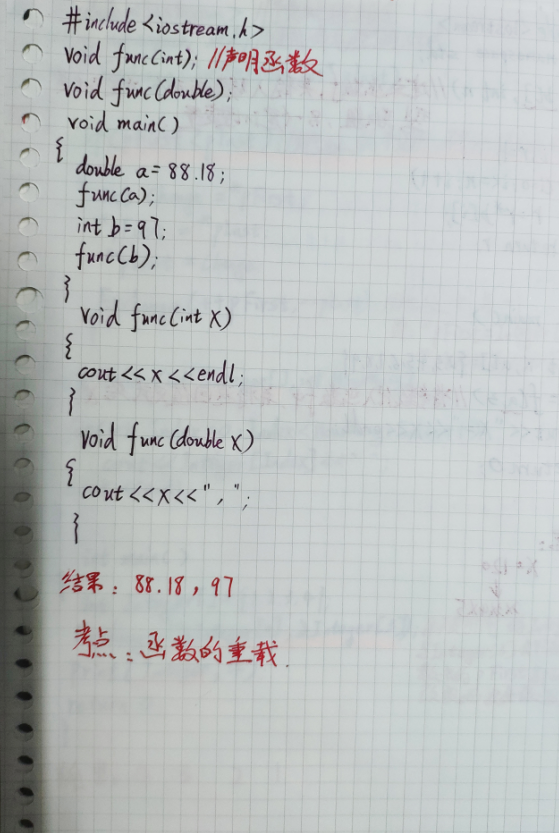 #include<iostream.h>
void func(int); //声明函数
void func(double);
void main()
{
double a=88.18;
func(a);
int b=97;
func(b);
}
void func(int x)
{
cout<<x<<endl;
}
void func(double x)
{
cout<<x<<",";
}
结果：88.18，97
考点：函数的重载.